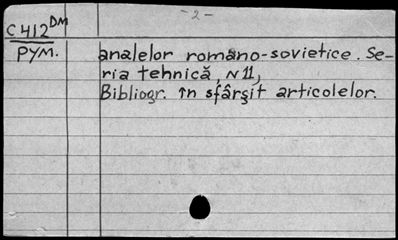 - 2 -
C 412 DM
РУМ.
analelor romano-sovietice. Se-
ria tehnică, N 11,
Bibliogr. în sfârşit articolelor.